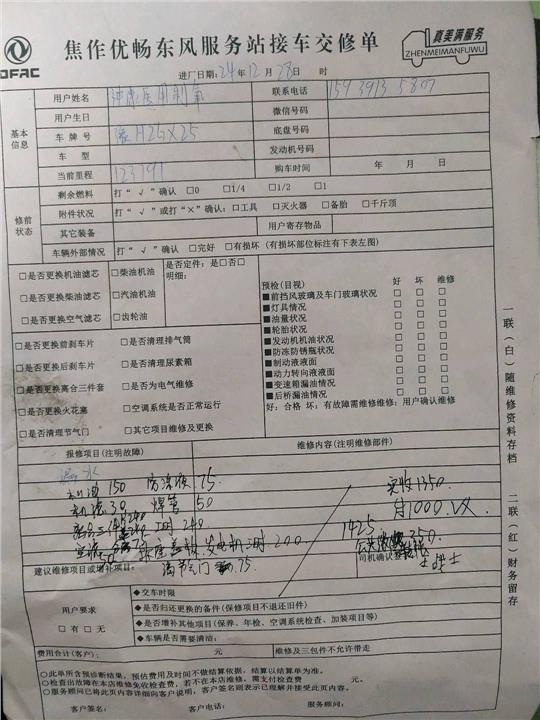 DFAC
焦作优畅东风服务站接车交修单
真美满服务
ZHENMEIMANFUWU
进厂日期:24年12月28日 时
基本信息
用户姓名
联系电话
用户生日
微信号码
车 牌 号
底盘号码
车 型
发动机号码
当前里程 123791
购车时间 年 月 日
修前状态
剩余燃料 打“√”确认 □0 □1/4 □1/2 □1
附件状况 打“√”或打“×”确认:□工具 □灭火器 □备胎 □千斤顶
其它装备 用户寄存物品
车辆外部情况 打“√”确认 □完好 □有损坏(有损坏部位标注有下表左图)
□是否更换机油滤芯 □柴油机油
□是否更换柴油滤芯 □汽油机油
□是否更换空气滤芯 □齿轮油
是否定件:是□否□
明细:
预检(目视) 好 坏 维修
■前挡风玻璃及车门玻璃状况 □ □ □
■灯具情况 □ □ □
■油量状况 □ □ □
■轮胎状况 □ □ □
■发动机机油状况 □ □ □
■防冻防锈瓶状况 □ □ □
■制动液液面 □ □ □
■动力转向液液面 □ □ □
■变速箱漏油情况 □ □ □
■后桥漏油情况 □ □ □
好:合格 坏:有故障需维修维修:用户确认维修
□是否更换前刹车片 □是否清理排气筒
□是否更换后刹车片 □是否清理尿素箱
□是否更换离合三件套 □是否为电气维修
□是否更换火花塞 □空调系统是否正常运行
□是否清理节气门 □其它项目维修及更换
报修项目(注明故障)
维修内容(注明维修部件)
漏水
机油 150 防冻液 75
机滤 30 焊管 50
工时 240
发电机工时 200
清节气门 75
实收1350
付1000
1425
350
建议维修项目或增补项目:
司机确认签字
用户要求
□有 □无
◆交车时限
◆是否归还更换的备件(保修项目不退还旧件)
◆是否增补其他项目(保养、年检、空调系统检查、加装项目等)
◆车辆是否需要清洁:
费用合计(客户): 元 维修及三包件不允许带走
○此单所含预诊断结果,预估费用及时间不做结算依据,结算以结算单为准。
○检查出故障在本店维修免收检查费,若不在本店维修,需支付检查费 元。
○服务顾问已将此页内容详细向客户说明,客户签名则表示已理解并接受此页内容。
客户签名: 客户电话: 服务顾问:
一联(白)随维修资料存档
二联(红)财务留存